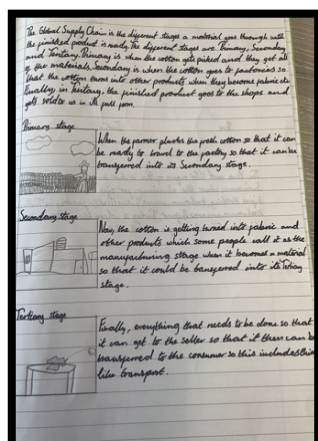 The Global Supply Chain is the different stages a material goes through until
the finished product is ready. The different stages are Primary, Secondary
and Tertiary. Primary is when the cotton gets picked and they get all
of the materials. Secondary is when the cotton goes to factories so
that the cotton turns into other products when they become fabric etc.
Finally in Tertiary, the finished product goes to the shops and
gets sold to us in its full form.
Primary stage
When the farmer plucks the fresh cotton so that it can
be ready to travel to the factory so that it can be
transferred into its Secondary stage.
Secondary stage
Now, the cotton is getting turned into fabric and
other products which some people call it as the
manufacturing stage when it becomes a material
so that it could be transferred into its Tertiary
stage.
Tertiary stage
Finally, everything that needs to be done so that
it can get to the seller so that it then can be
transferred to the consumer so this includes
like transport.